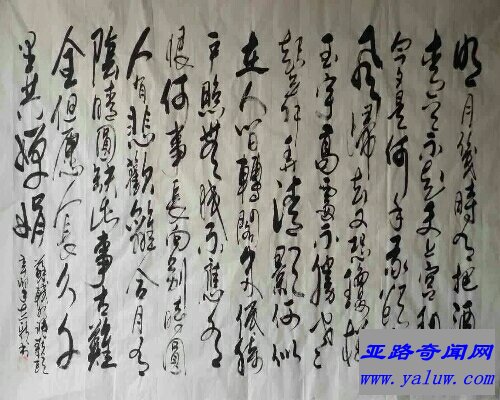 明月幾時有把酒
青天不知天上宮
今夕是何年我欲
風歸去又恐瓊樓
玉宇高處不勝寒
起舞弄清影何似
在人間轉朱閣低綺
戶照無眠不應有
恨何事長向別時圓
人有悲歡離合月有
陰晴圓缺此事古難
全但願人長久千
里共嬋娟
蘇軾水調歌頭
亚路奇闻网
www.yaluw.com